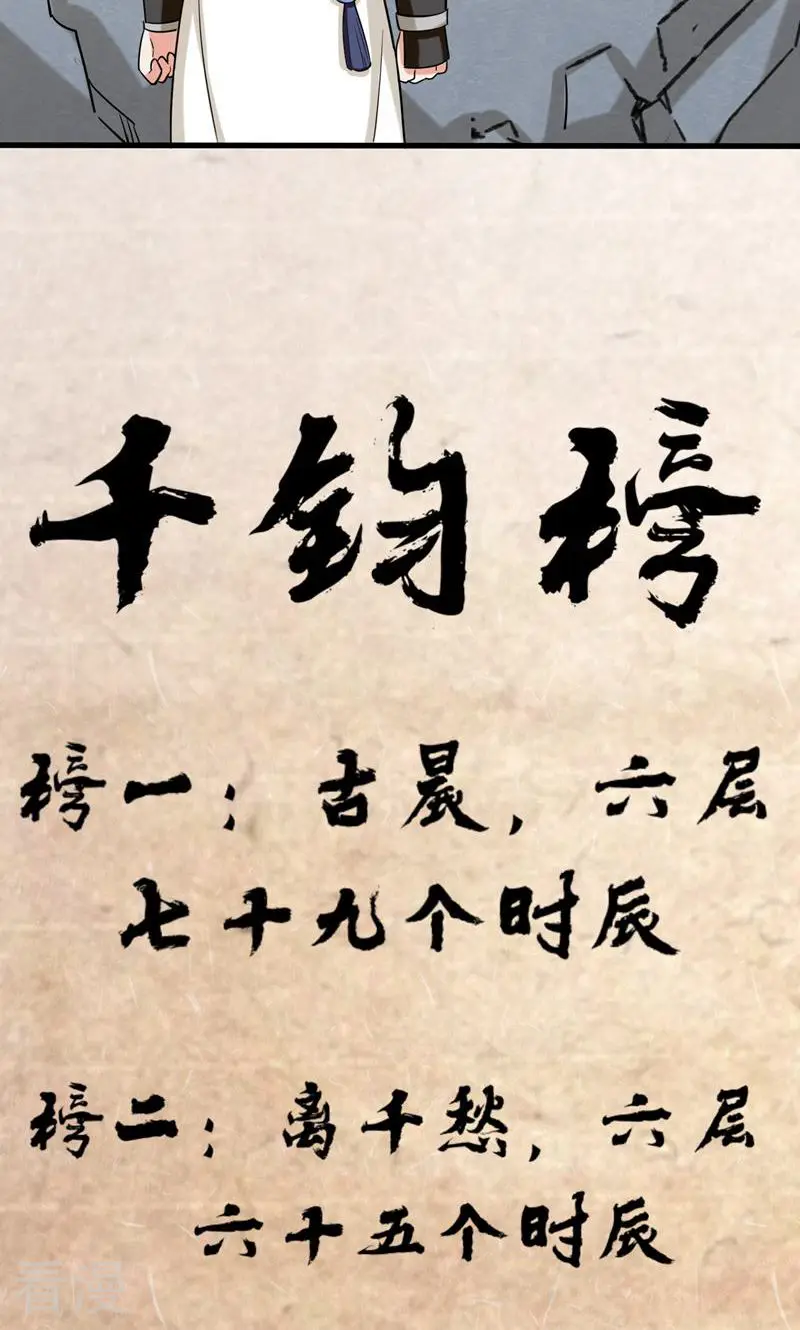 千钧榜
榜一；古晨，六层
七十九个时辰
榜二；离千愁，六层
六十五个时辰
看漫